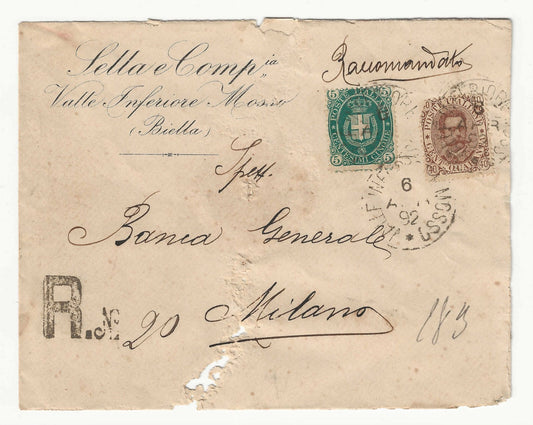 Sella e Comp ia
Valle Inferiore Mosso
(Biella)
Raccomandata
5 POSTE ITALIANE 5
5 CENTESIMI CINQUE 5
POSTE ITALIANE
6
92
VALLE INFERIORE MOSSO
Spett.
Banca Generale
Milano
R. No 20
183